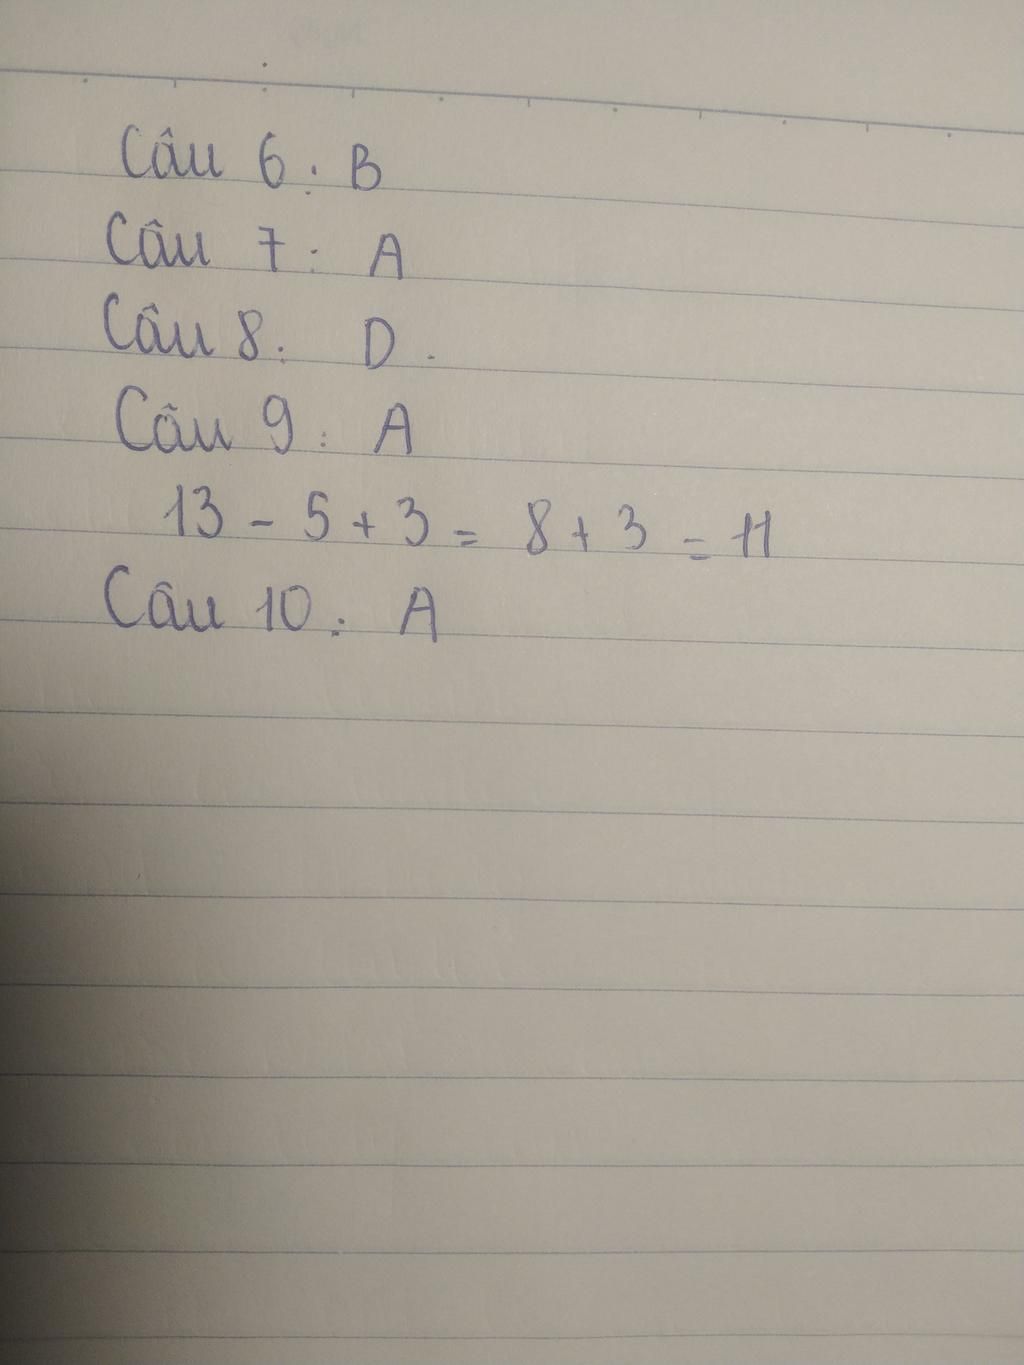 Câu 6: B
Câu 7: A
Câu 8: D.
Câu 9: A
13 - 5 + 3 = 8 + 3 = 11
Câu 10: A